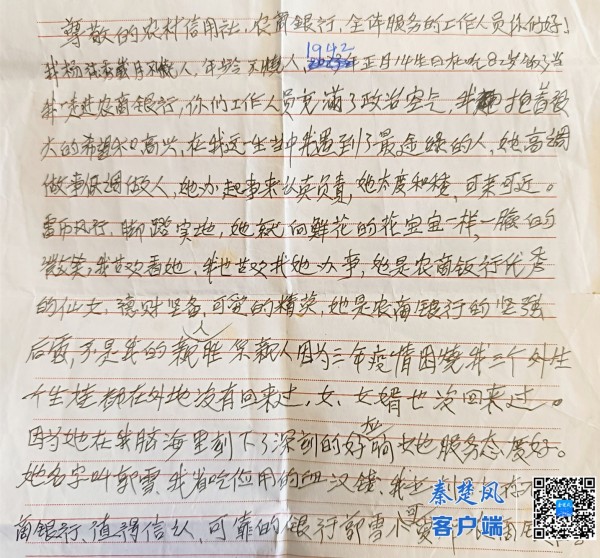 尊敬的农村信用社,农商银行,全体服务的工作人员你们好!
我杨 岁月不饶人,年龄不饶人,1942年正月14生日在吃82岁的了当
我一走进农商银行,你们工作人员充满了政治空气,我抱着很
大的希望和高兴,在我这一生当中我遇到了最 的人,她高调
做事低调做人,她办起事来认真负责,她太度和 ,可亲可近。
雷历风行,脚踏实地,她就向鲜花的花宝宝一样,一脸的
微笑,我喜欢看她,我也喜欢找她办事,她是农商银行优秀
的仙女,德财坚备,可爱的精英,她是农商银行的坚强
后 ,不是我的亲人胜似亲人因为三年疫情困绕我三个外生
个生 都在外地没有回来过,女、女婿也 次回来过。
因为她在我脑海里刻下了深刻的好影响 她服务态度好。
她名字叫郭雪,我省吃俭用的 汉钱,我
商银行、值得信认,可靠的银行郭雪小
秦楚风
客户端